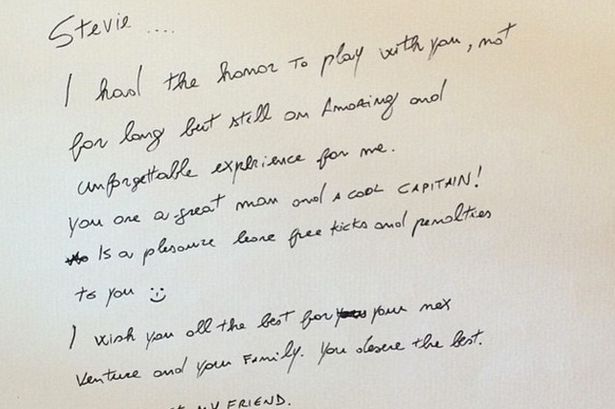 Stevie ....
I had the honor to play with you, not
for long but still an Amazing and
unforgettable experience for me.
You are a great man and a cool CAPITAIN!
Is a pleasure leave free kicks and penalties
to you :)
I wish you all the best for your nex
venture and your Family. You deserve the best.
MY FRIEND.